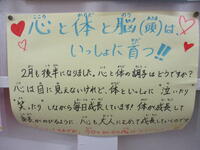 心と体と脳(頭)は、
いっしょに育つ!!
2月も後半になりました。心と体の調子はどうですか?
心は目に見えないけれど、体といっしょに 泣いたり
笑ったりしながら毎日成長しています! 体が成長して
心も大人にむけて成長しているのです